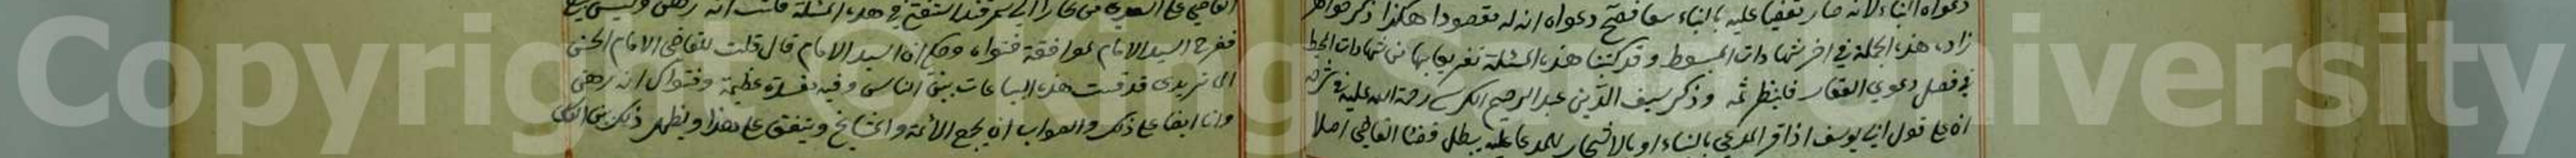 دعواه البناء لانه صار مقضيا عليه بالبناء تبعا فصح دعواه انه له مقصودا هكذا ذكر خواهر
زاده هذه الجملة في اخر شهادات المبسوط وقد كتبنا هذه المسئلة بتفريعاتها من شهادات المحيط
في فصل دعوى العقار فلينظر ثمه وذكر سيف الدين عبد الرحيم الكر رحمة الله عليه في شرحه
ان على قول ابي يوسف اذا اقر المدعي بالبناء او بالاشجار للمدعا عليه يبطل قضاء القاضي اصلا
القاضي على السغدي من بخارا الى سمرقند استفتي في هذه المسئلة فكتب انه رهن وليس ببيع
ففرح السيد الامام لموافقة فتواه وحكي ان السيد الامام قال قلت للقاضي الامام الحسن
الماتريدي قد فشت هذه البياعات بين الناس وفيه مفسدة عظيمة وفتواك انه رهن
وانا ايضا على ذلك والصواب ان يجمع الأئمة والمشايخ ويتفق على هذا ويظهر ذلك بين الناس
Copyright © King Saud University